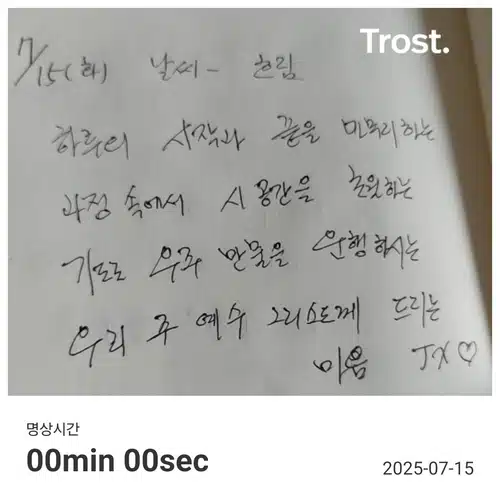 Trost.
7/15(화) 날씨- 흐림
하루의 시작과 끝을 마무리하는
과정 속에서 시공간을 초월하는
기도로 우주 만물을 운행하시는
우리 주 예수 그리스도께 드리는
마음 JX♡
명상시간
00min 00sec
2025-07-15